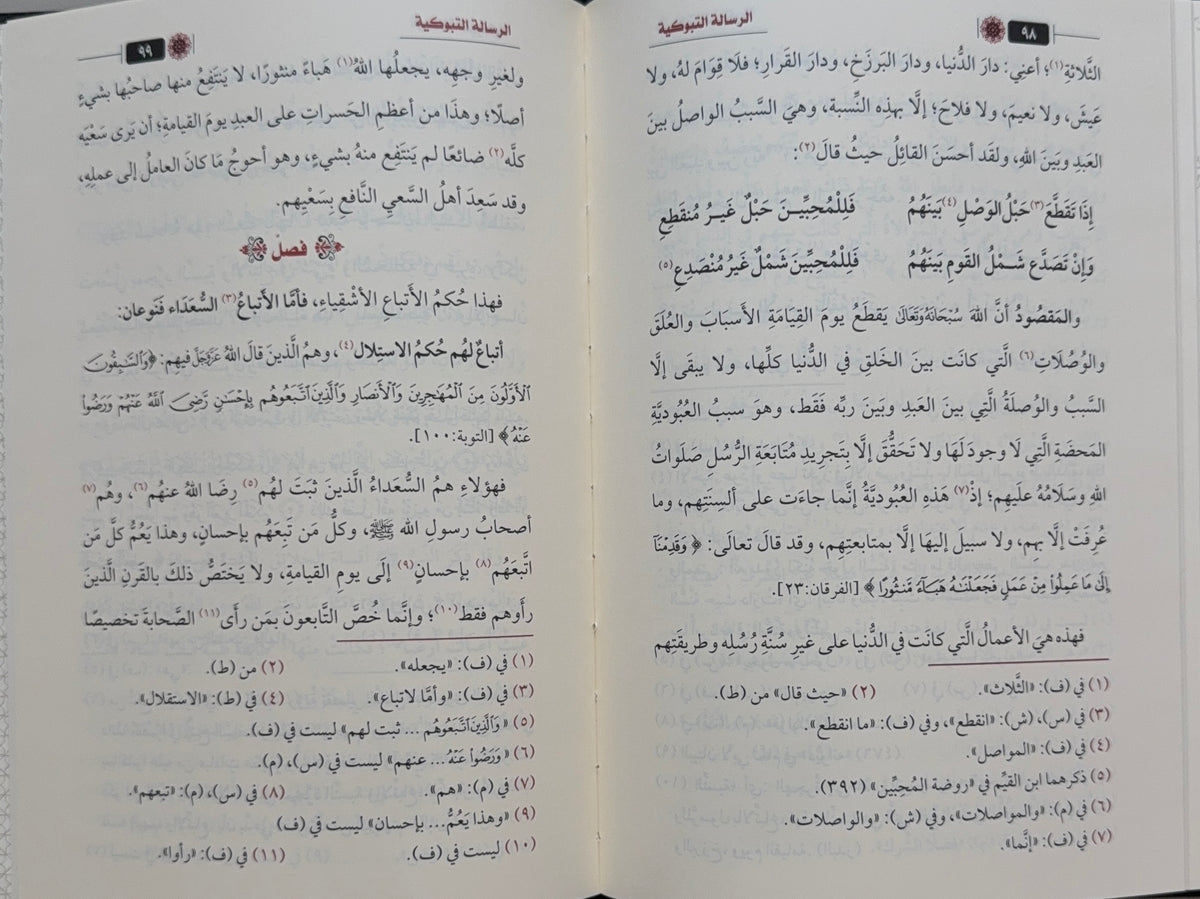 ٩٨
الرسالة التبوكية
الثَّلاثةِ(١)؛ أعنِي: دارَ الدُّنيا، ودارَ البَرزَخِ، ودارَ القَرارِ؛ فلَا قِوَامَ لهُ، ولا
عَيشَ، ولا نعيمَ، ولا فلاحَ؛ إلَّا بهذِه النِّسبة، وهيَ السَّببُ الواصلُ بينَ
العَبدِ وبَينَ اللهِ، ولقَد أحسَنَ القائِلُ حيثُ قالَ(٢):
إِذَا تَقَطَّعَ(٣) حَبْلُ الوَصْلِ(٤) بَينَهُمُ فَلِلْمُحِبِّيـنَ حَبْلٌ غَيـرُ مُنقَطِعِ
وَإِنْ تَصَدَّع شَـمْلُ القَومِ بَينَهُمُ فَلِلْمُحِبِّيـنَ شَمْلٌ غَيرُ مُنْصَدِعِ(٥)
والمَقصُودُ أنَّ اللهَ سُبْحَانَهُوَتَعَالَىٰ يَقطَعُ يومَ القِيَامَةِ الأَسبَابَ والعُلَقَ
والوُصُلَاتِ(٦) الَّتي كانَت بينَ الخَلقِ في الدُّنيا كلِّها، ولا يبقَى إلَّا
السَّببُ والوُصلَةُ الَّتي بينَ العَبدِ وبَينَ ربِّه فَقَط، وهوَ سببُ العُبوديَّةِ
المَحضَةِ الَّتي لَا وجودَ لَهَا ولَا تَحَقُّقَ إلَّا بِتَجرِيدِ مُتَابَعَةِ الرُّسُلِ صَلَواتُ
اللهِ وسَلَامُهُ علَيهِم؛ إذْ(٧) هَذِهِ العُبُودِيَّةُ إنَّما جاءَت على ألسِنَتِهم، وما
عُرِفَتْ إلَّا بِهِم، ولا سبيلَ إليهَا إلَّا بمتابعتِهم، وقد قالَ تعالَى: ﴿ وَقَدِمْنَآ
إِلَىٰ مَا عَمِلُوا۟ مِنْ عَمَلٍ فَجَعَلْنَـٰهُ هَبَآءً مَّنثُورًا ﴾ [الفرقان:٢٣].
فهذِه هيَ الأعمالُ الَّتي كانَت في الدُّنيا على غيرِ سُنَّةِ رُسُلِه وطريقَتِهِم
(١) في (ف): «الثَّلاث». (٢) «حيث قال» من (ط).
(٣) في (س)، (ش): «انقطع»، وفي (ف): «ما انقطع».
(٤) في (ف): «المواصل».
(٥) ذكرهما ابن القيِّم في «روضة المُحبِّين» (٣٩٢).
(٦) في (م): «والمواصلات»، وفي (ش): «والواصلات».
(٧) في (ف): «إنَّما».
الرسالة التبوكية
٩٩
ولغيرِ وجهِه، يجعلُها اللهُ(١) هَباءً منثورًا، لا يَنتَفِعُ منها صاحبُها بشيءٍ
أصلًا؛ وهذَا من أعظمِ الحَسراتِ على العبدِ يومَ القيامةِ؛ أن يَرى سَعْيَه
كلَّه(٢) ضائعًا لم يَنتَفِع منهُ بشيءٍ، وهو أحوجُ مَا كانَ العاملُ إلى عملِهِ،
وقد سَعدَ أهلُ السَّعيِ النَّافعِ بِسَعْيِهم.
فصلٌ
فهذا حُكمُ الأتباعِ الأشْقِياءِ، فأمَّا الأتباعُ(٣) السُّعَدَاء فَنَوعان:
أتباعٌ لهُم حُكمُ الاستِلال(٤)، وهمُ الَّذينَ قالَ اللهُ عَزَّوَجَلَّ فيهِم: ﴿وَٱلسَّـٰبِقُونَ
ٱلْأَوَّلُونَ مِنَ ٱلْمُهَـٰجِرِينَ وَٱلْأَنصَارِ وَٱلَّذِينَ ٱتَّبَعُوهُم بِإِحْسَـٰنٍ رَّضِىَ ٱللَّهُ عَنْهُمْ وَرَضُوا۟
عَنْهُ ﴾ [التوبة:١٠٠].
فهؤلاءِ همُ السُّعداءُ الَّذينَ ثبَتَ لهُم(٥) رِضَا اللهُ عنهُم(٦)، وهُم(٧)
أصحابُ رسولِ اللهِ ﷺ، وكلُّ مَن تَبِعَهُم بإحسانٍ، وهذا يَعُمُّ كلَّ مَن
اتَّبَعَهُم(٨) بإحسانٍ(٩) إلَى يومِ القيامةِ، ولا يَختَصُّ ذلكَ بالقَرنِ الَّذينَ
رأَوهم فقط(١٠)؛ وإنَّما خُصَّ التَّابعونَ بمَن رأَى(١١) الصَّحابةَ تخصيصًا
(١) في (ف): «يجعله». (٢) من (ط).
(٣) في (ف): «وأمَّا لاتباع». (٤) في (ط): «الاستقلال».
(٥) «وَٱلَّذِينَ ٱتَّبَعُوهُم ... ثبت لهم» ليست في (ف).
(٦) «وَرَضُوا۟ عَنْهُ... عنهم» ليست في (س)، (م).
(٧) في (م): «هم». (٨) في (س)، (م): «تبعهم».
(٩) «وهذا يَعُمُّ... بإحسان» ليست في (ف)
(١٠) ليست في (ف). (١١) في (ف): «رأوا».